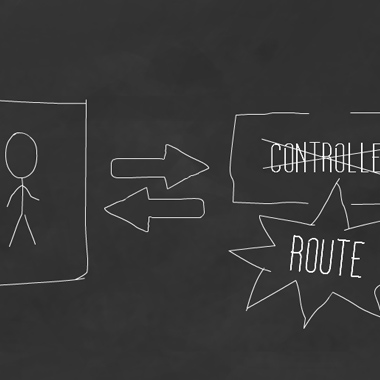 CONTROLLE
ROUTE